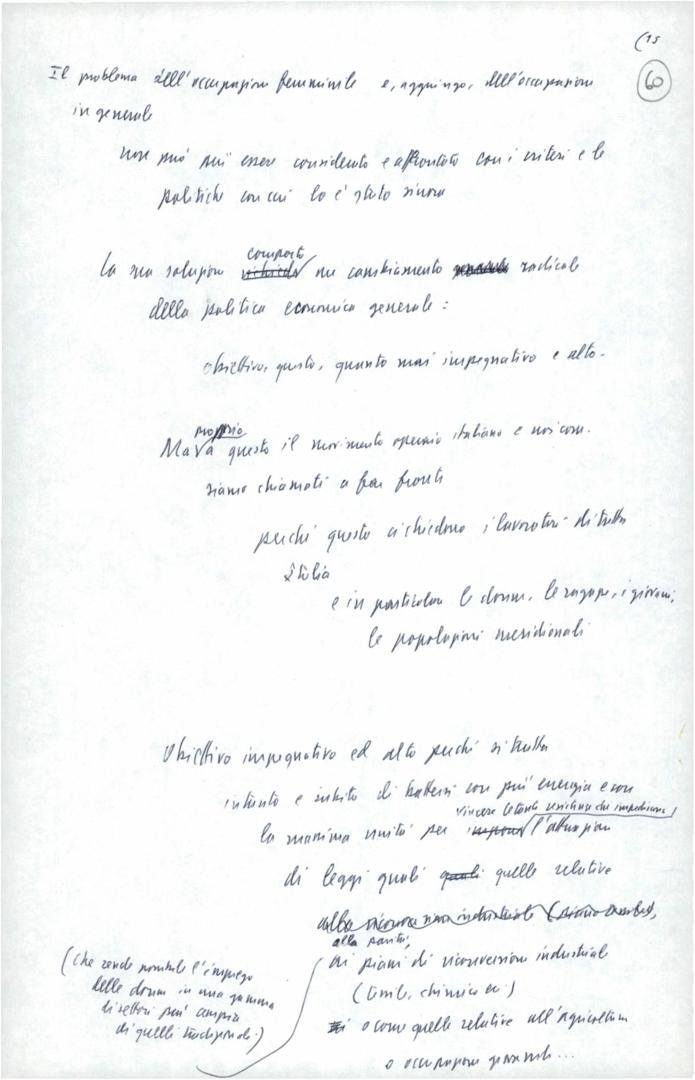 (15
60
Il problema dell'occupazione femminile e, aggiungo, dell'occupazione
in generale
non può più essere considerato e affrontato con i criteri e le
politiche con cui lo è stato sinora
comporta
La sua soluzione richiede un cambiamento radicale
della politica economica generale:
obiettivo, questo, quanto mai impegnativo e alto.
proprio
Ma a questo il movimento operaio italiano e noi com.
siamo chiamati a far fronte
perché questo ci chiedono i lavoratori di tutta
Italia
e in particolare le donne, le ragazze, i giovani,
le popolazioni meridionali
Obiettivo impegnativo ed alto perché si tratta
intanto e subito di battersi con più energia e con
vincere le tante resistenze che impediscono
la massima unità per imporre l'attuazione
di leggi quali quali quelle relative
alla riconversione industriale
alla parità,
ai piani di riconversione industriale
(tessile, chimico ecc)
o come quelle relative all'agricoltura
o occupazione giovanile...
(che rende possibile l'impiego
delle donne in una gamma
di settori più ampia
di quelli tradizionali)